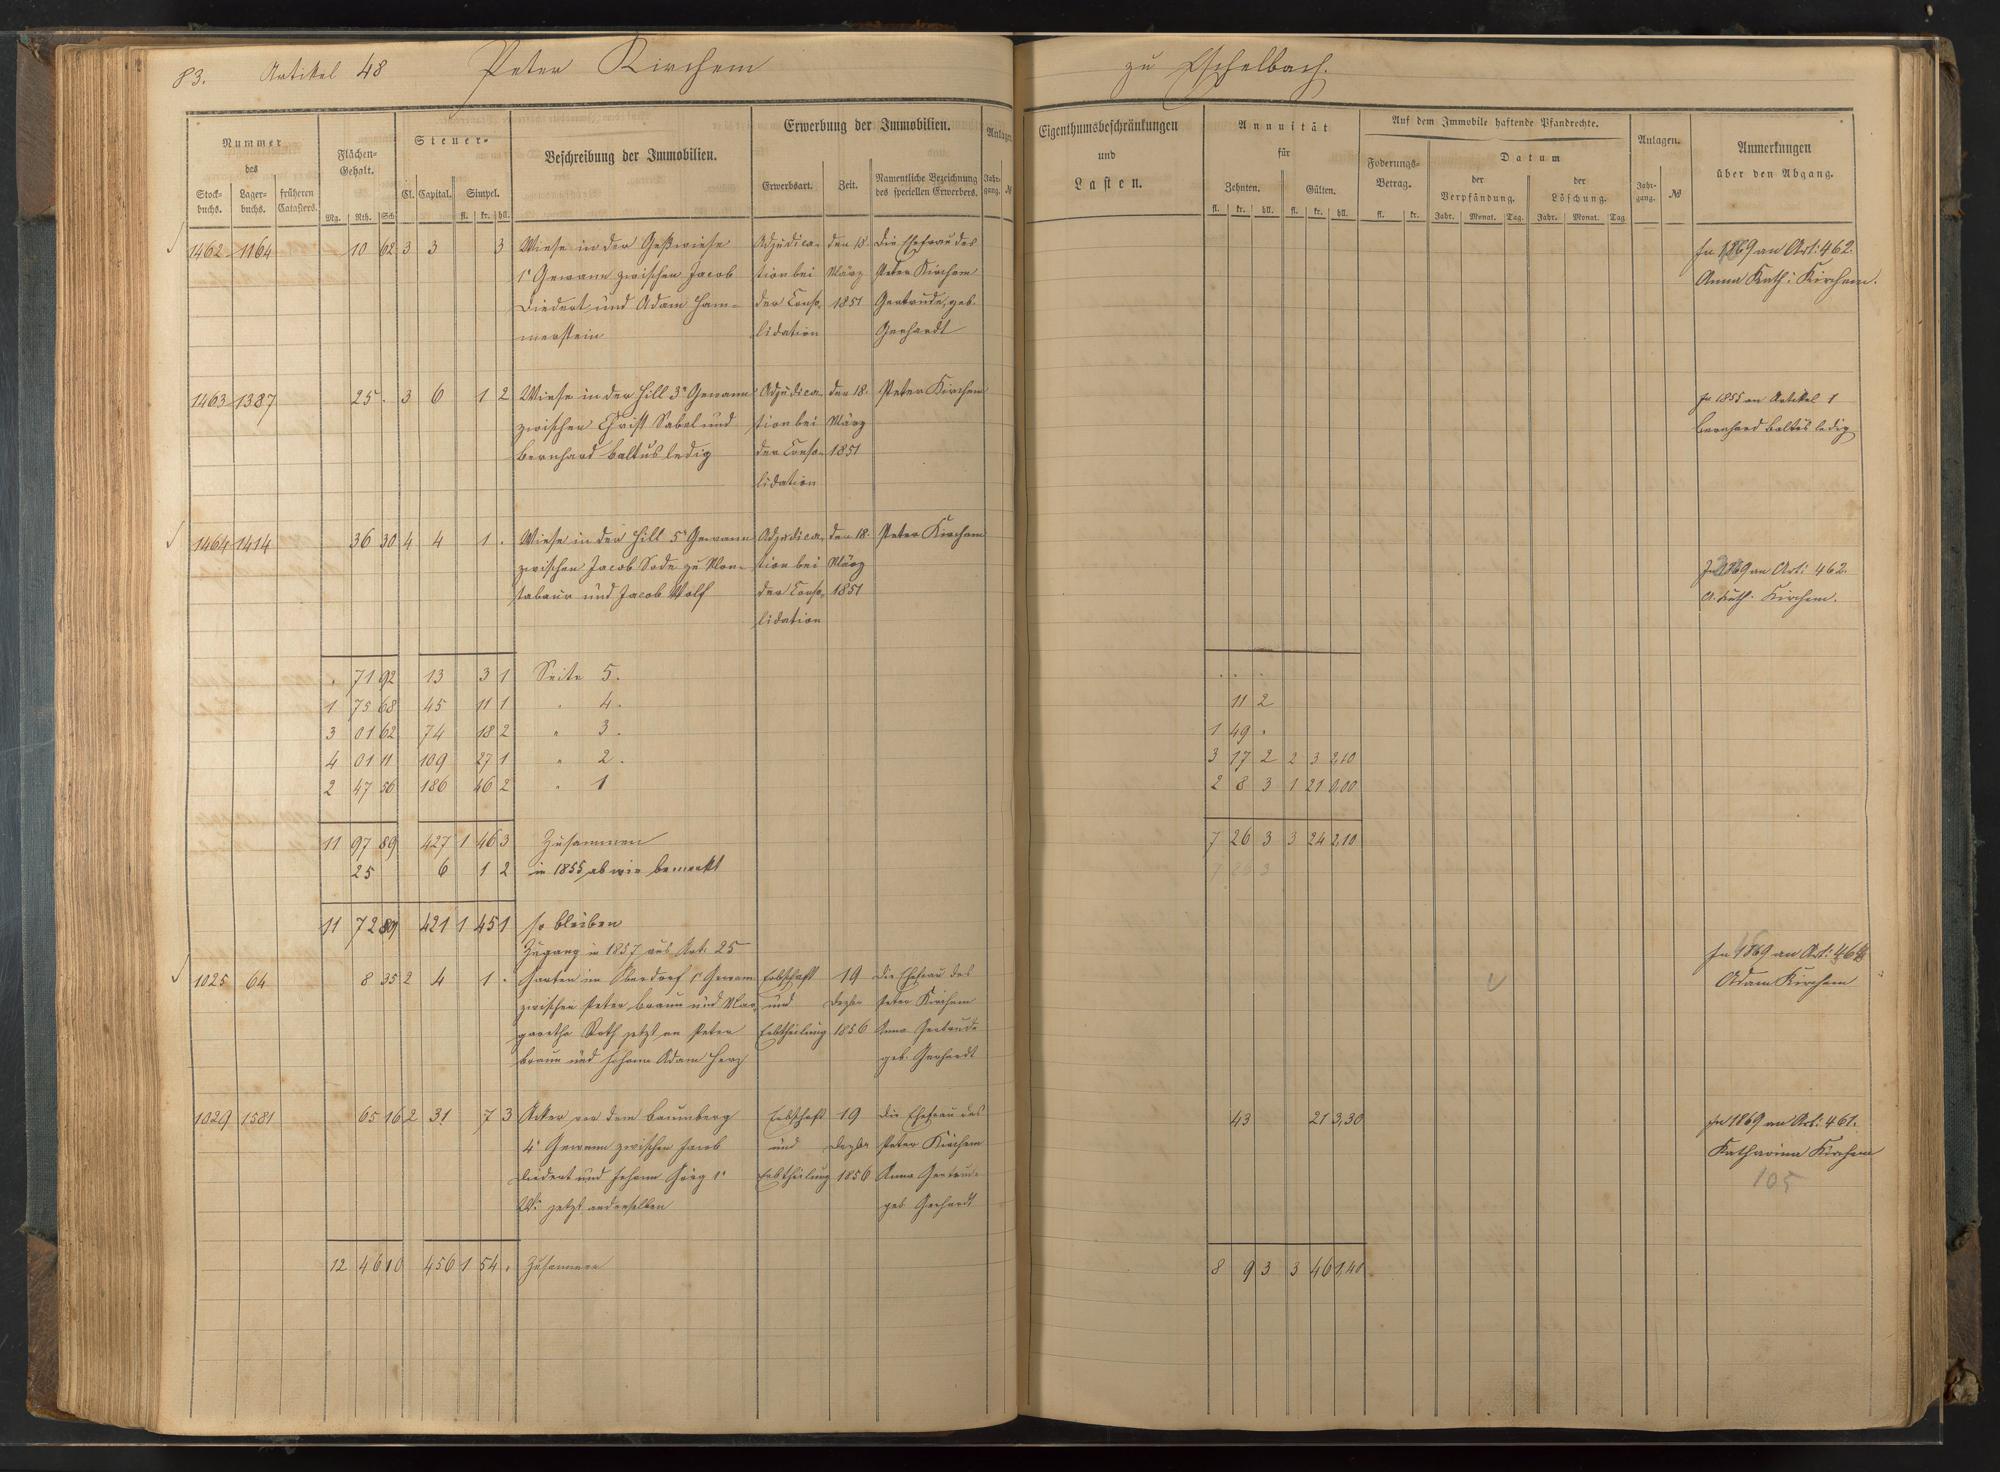 83. Artikel 48 Peter Kirchem zu Eschelbach.
Nummer des
Stock-buchs. Lager-buchs. früheren Catasters.
Flächen-Gehalt.
Mg. Rth. Sch.
Steuer-
Cl. Capital. Simpel.
fl. kr. hll.
Beschreibung der Immobilien.
Erwerbung der Immobilien.
Erwerbsart. Zeit. Namentliche Bezeichnung des speciellen Erwerbers.
Anlagen.
Jahr-gang. №
Eigenthumsbeschränkungen und Lasten.
Annuität für
Zehnten. Gülten.
fl. kr. hll. fl. kr. hll.
Auf dem Immobile haftende Pfandrechte.
Foderungs-Betrag.
fl. kr.
Datum
der Verpfändung. der Löschung.
Jahr. Monat. Tag. Jahr. Monat. Tag
Anlagen.
Jahr-gang. №
Anmerkungen über den Abgang.
1462 1164 10 62 3 3 3 Wiese in der Geßwiese Adjudica- den 18. die Ehefrau des In 1869 an Art: 462.
1r Gewann zwischen Jacob tion bei März Peter Kirchem Anna Kath: Kirchem.
Diedert und Adam Ham- der Conso- 1851 Gertrude, geb.
merstein lidation Gerhardt
1463 1387 25 . 3 6 1 2 Wiese in der Hill 3r Gewann Adjudica- den 18. Peter Kirchem In 1855 an Artikel 1
zwischen Christ Sabel und tion bei März Bernhard Baltus ledig
Bernhard Baltus ledig der Conso- 1851
lidation
1464 1414 36 30 4 4 1 . Wiese in der Hill 5r Gewann Adjudica- den 18. Peter Kirchem
zwischen Jacob Sode zu Mon- tion bei März In 1869 an Art: 462.
tabaur und Jacob Wolf der Conso- 1851 A. Kath. Kirchem.
lidation
. 71 92 13 3 1 Seite 5. . . .
1 75 68 45 11 1 " 4. 11 2
3 01 62 74 18 2 " 3. 1 49 .
4 01 11 109 27 1 " 2. 3 17 2 2 3 2,10
2 47 56 186 46 2 " 1 2 8 3 1 21 0,00
11 97 89 427 1 46 3 Zusammen 7 26 3 3 24 2,10
25 6 1 2 in 1855 ab wie bemerkt 7 26 3
11 72 89 421 1 45 1 so bleiben
Zugang in 1857 aus Art. 25
1025 64 8 35 2 4 1 . Garten im Oberdorf 1r Gewann Erbschaft 19 die Ehefrau des In 1869 an Art: 464
zwischen Peter Braun und Mar- und Dezbr Peter Kirchem Adam Kirchem
garetha Roth jetzt an Peter Erbtheilung 1856 Anna Gertrude
Braun und Johann Adam Herz geb. Gerhardt
1029 1581 65 16 2 31 7 3 Acker vor dem Baumberg Erbschaft 19 die Ehefrau des 43 21 3,30 In 1869 an Art: 461.
4r Gewann zwischen Jacob und Dezbr Peter Kirchem Katharina Kirchem
Diedert und Johann Görg 1r Erbtheilung 1856 Anna Gertrude 105
jetzt anderselben geb. Gerhardt
12 46 10 456 1 54 . Zusammen 8 9 3 3 46 1,40